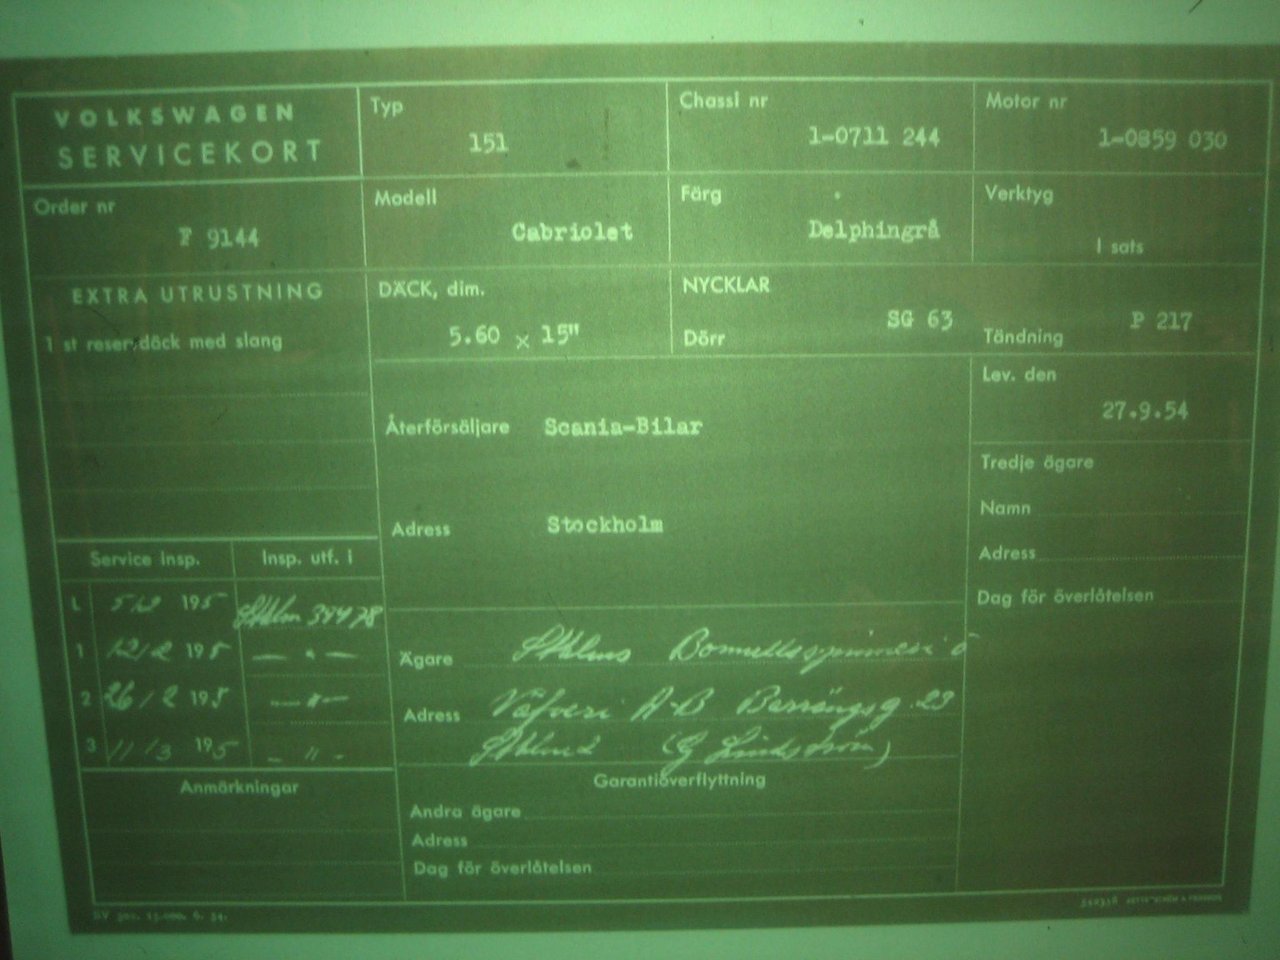 VOLKSWAGEN
SERVICEKORT
Typ
151
Chassi nr
1-0711 244
Motor nr
1-0859 030
Order nr
F 9144
Modell
Cabriolet
Färg
Delphingrå
Verktyg
1 sats
EXTRA UTRUSTNING
1 st reservdäck med slang
DÄCK, dim.
5.60 x 15"
NYCKLAR
Dörr
SG 63
Tändning
P 217
Återförsäljare Scania-Bilar
Adress Stockholm
Lev. den
27.9.54
Tredje ägare
Namn
Adress
Dag för överlåtelsen
Service insp. Insp. utf. i
L 195 Sthlm 34478
1 12/2 195 — " —
2 26/2 195 — " —
3 11/3 195 - " -
Anmärkningar
Ägare Sthlms Bomullsspinneri o
Adress Väfveri A-B Barnängsg. 23
Sthlm (G Lindström)
Garantiöverflyttning
Andra ägare
Adress
Dag för överlåtelsen